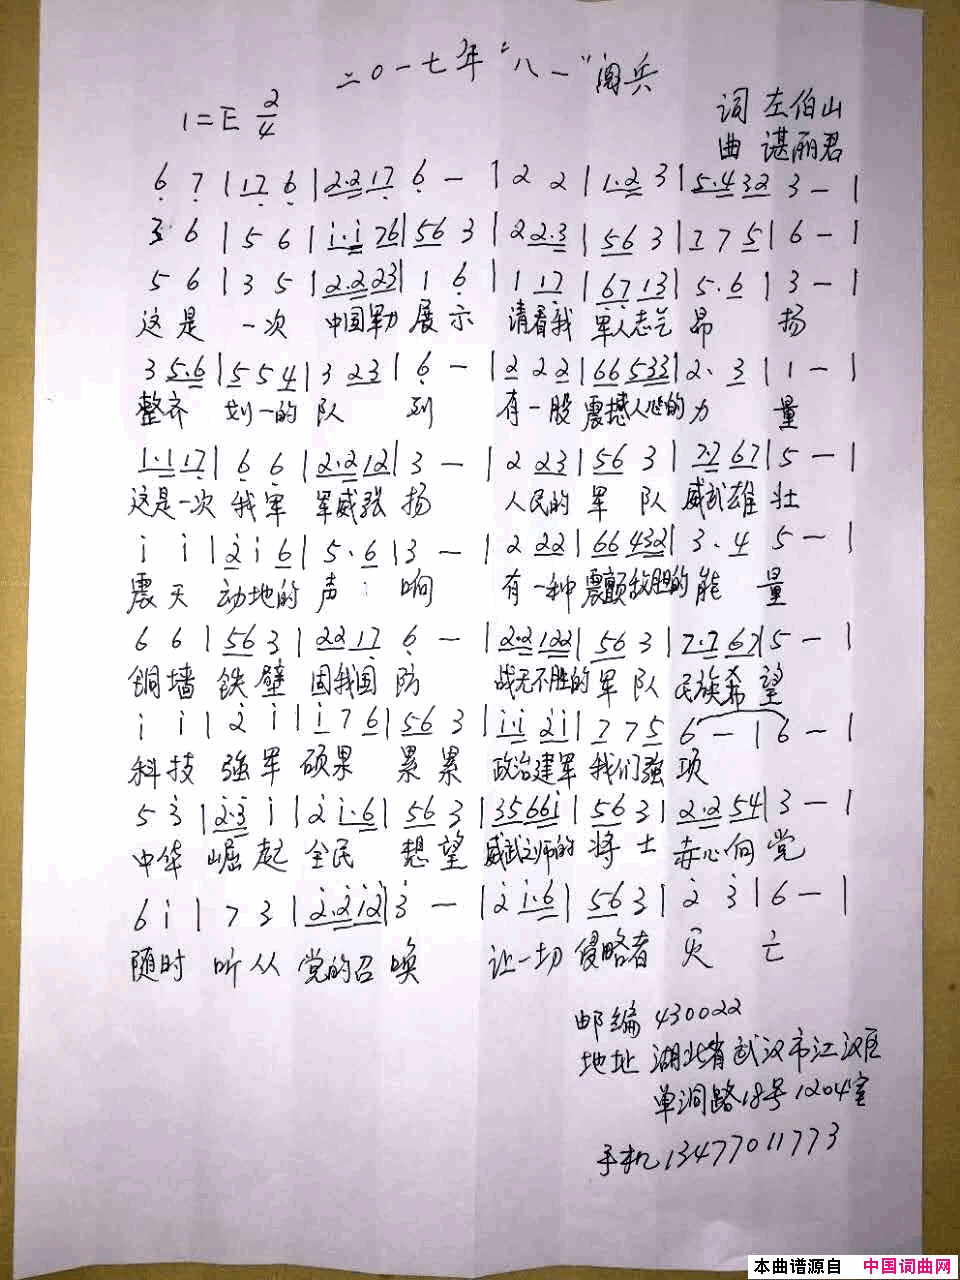 二〇一七年“八一”阅兵
1=E 2/4
词 左伯山
曲 谌丽君
6 7 | 17 6 | 2·217 6 — | 2 2 | 1·2 3 | 5·432 3 — |
3 6 | 5 6 | i·i 76 | 56 3 | 22·3 | 56 3 | 2 7 5 | 6 — |
5 6 | 3 5 | 2·223 | 1 6 | 1 17 | 67 13 | 5·6 | 3 — |
这是 一次 中国军力 展示 请看我 军人志气 昂 扬
3 5·6 | 5 5 4 | 3 23 | 6 — | 2 2 2 | 66 533 | 2· 3 | 1 — |
整齐 划一的 队 列 有一股 震撼人心的 力 量
1·1 17 | 6 6 | 2·212 | 3 — | 2 23 | 56 3 | 7·7 67 | 5 — |
这是一次 我军 军威张 扬 人民的 军 队 威武雄 壮
i i | 2 i 6 | 5·6 | 3 — | 2 22 | 66 432 | 3·4 5 — |
震天 动地的 声 响 有一种 震颤敌胆的 能 量
6 6 | 56 3 | 22 17 6 — | 2·2 122 | 56 3 | 7·7 67 | 5 — |
铜墙 铁壁 固我国 防 战无不胜的 军 队 民族希 望
i i | 2 i | i 7 6 | 56 3 | i·i 2i | 7 7 5 6 — | 6 — |
科技 强军 硕果 累累 政治建军 我们强 项
5 3 | 2·3 i | 2 i·6 | 56 3 | 3566i | 56 3 | 2·2 54 | 3 — |
中华 崛起 全民 想望 威武之师的 将士 赤心向 党
6 i | 7 3 | 2·212 | 3 — | 2 i·6 | 56 3 | 2 3 | 6 — |
随时 听从 党的召 唤 让一切 侵略者 灭 亡
邮编 430022
地址 湖北省武汉市江汉区
单洞路18号1204室
手机 13477011773
本曲谱源自 中国词曲网